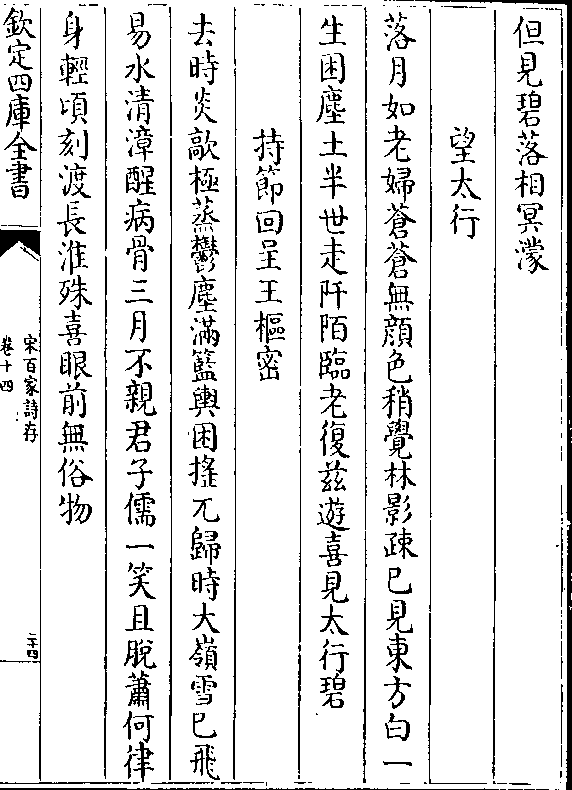 但見碧落相冥濛
望太行
落月如老婦蒼蒼無顔色稍覺林影疎已見東方白一
生困塵土半世走阡陌臨老復兹遊喜見太行碧
持節回呈王樞密
去時炎歊極蒸鬱塵滿籃輿困摇兀歸時大嶺雪已飛
易水清漳醒病骨三月不親君子儒一笑且脫蕭何律
身輕頃刻渡長淮殊喜眼前無俗物
欽定四庫全書
宋百家詩存
卷十四
二十四